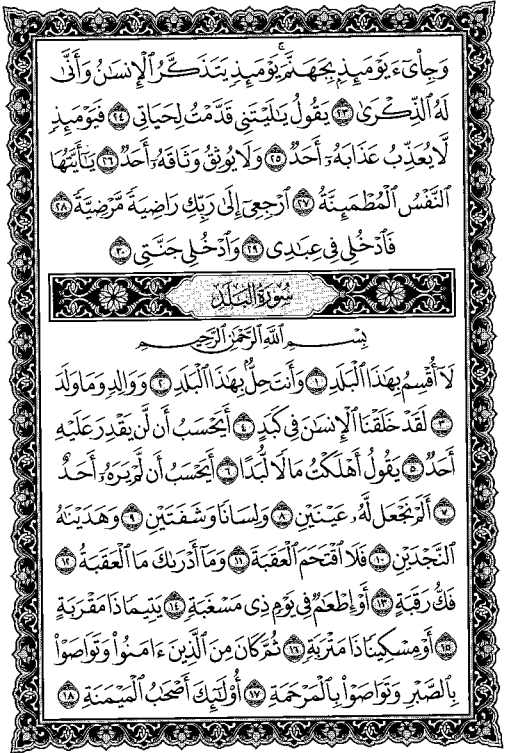 وَجِاْىٓءَ يَوْمَئِذٍۭ بِجَهَنَّمَۚ يَوْمَئِذٍ يَتَذَكَّرُ ٱلْإِنسَٰنُ وَأَنَّىٰ
لَهُ ٱلذِّكْرَىٰ ٢٣ يَقُولُ يَٰلَيْتَنِى قَدَّمْتُ لِحَيَاتِى ٢٤ فَيَوْمَئِذٍ
لَّا يُعَذِّبُ عَذَابَهُۥٓ أَحَدٌ ٢٥ وَلَا يُوثِقُ وَثَاقَهُۥٓ أَحَدٌ ٢٦ يَٰٓأَيَّتُهَا
ٱلنَّفْسُ ٱلْمُطْمَئِنَّةُ ٢٧ ٱرْجِعِىٓ إِلَىٰ رَبِّكِ رَاضِيَةً مَّرْضِيَّةً ٢٨
فَٱدْخُلِى فِى عِبَٰدِى ٢٩ وَٱدْخُلِى جَنَّتِى ٣٠
سُورَةُ البَلَدِ
بِسْمِ ٱللَّهِ ٱلرَّحْمَٰنِ ٱلرَّحِيمِ
لَآ أُقْسِمُ بِهَٰذَا ٱلْبَلَدِ ١ وَأَنتَ حِلٌّۢ بِهَٰذَا ٱلْبَلَدِ ٢ وَوَالِدٍ وَمَا وَلَدَ
٣ لَقَدْ خَلَقْنَا ٱلْإِنسَٰنَ فِى كَبَدٍ ٤ أَيَحْسَبُ أَن لَّن يَقْدِرَ عَلَيْهِ
أَحَدٌ ٥ يَقُولُ أَهْلَكْتُ مَالًا لُّبَدًا ٦ أَيَحْسَبُ أَن لَّمْ يَرَهُۥٓ أَحَدٌ
٧ أَلَمْ نَجْعَل لَّهُۥ عَيْنَيْنِ ٨ وَلِسَانًا وَشَفَتَيْنِ ٩ وَهَدَيْنَٰهُ
ٱلنَّجْدَيْنِ ١٠ فَلَا ٱقْتَحَمَ ٱلْعَقَبَةَ ١١ وَمَآ أَدْرَىٰكَ مَا ٱلْعَقَبَةُ ١٢
فَكُّ رَقَبَةٍ ١٣ أَوْ إِطْعَٰمٌ فِى يَوْمٍ ذِى مَسْغَبَةٍ ١٤ يَتِيمًا ذَا مَقْرَبَةٍ
١٥ أَوْ مِسْكِينًا ذَا مَتْرَبَةٍ ١٦ ثُمَّ كَانَ مِنَ ٱلَّذِينَ ءَامَنُوا۟ وَتَوَاصَوْا۟
بِٱلصَّبْرِ وَتَوَاصَوْا۟ بِٱلْمَرْحَمَةِ ١٧ أُو۟لَٰٓئِكَ أَصْحَٰبُ ٱلْمَيْمَنَةِ ١٨